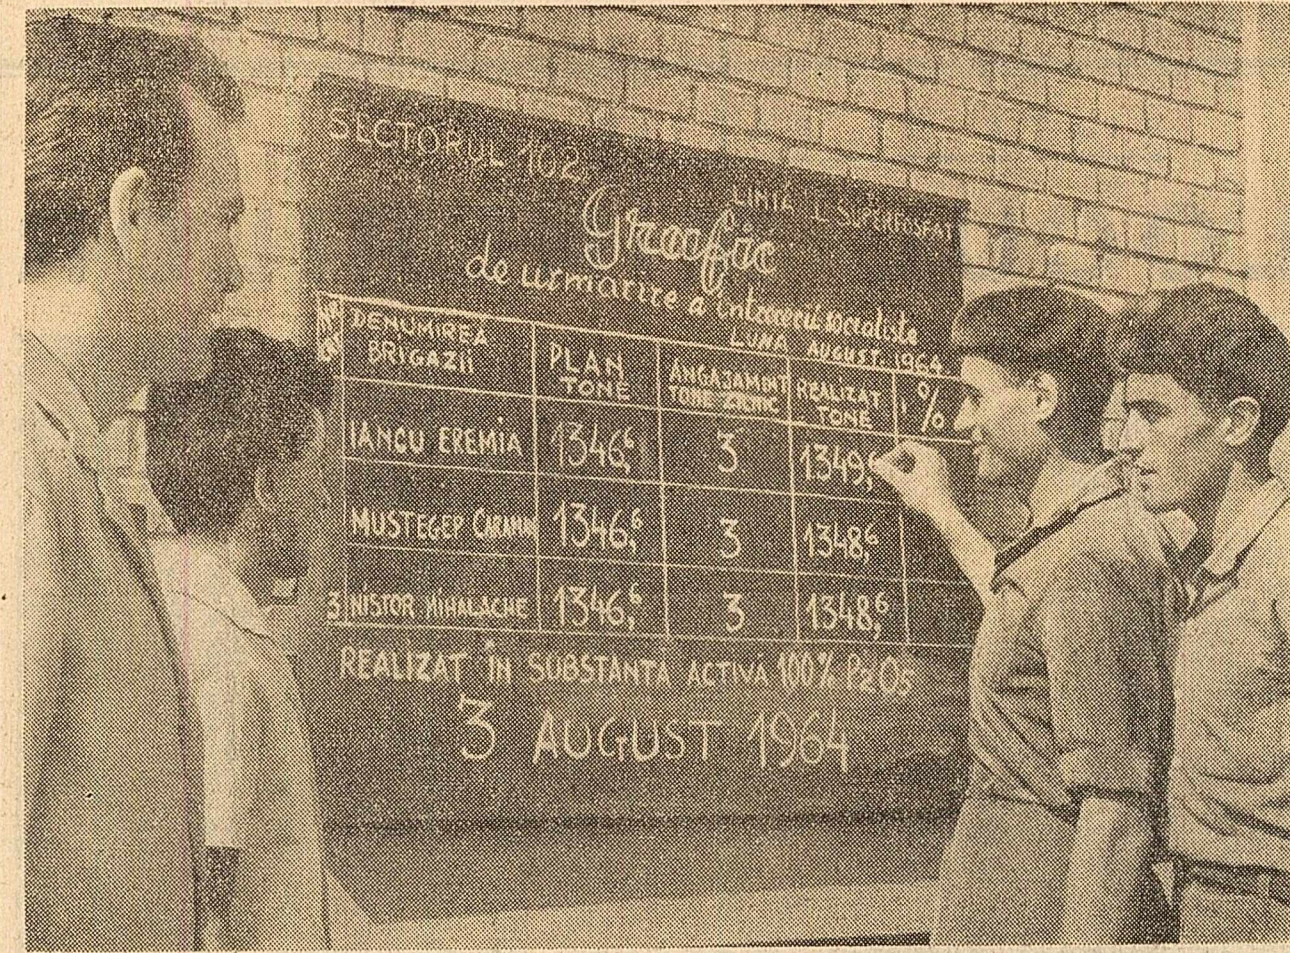 SECTORUL 102
LINIA I. SUPERFOSFAT
Grafic
de urmărire a întrecerii socialiste
LUNA AUGUST 1964
DENUMIREA BRIGAZII PLAN TONE ANGAJAMENT TONE ZILNIC REALIZAT TONE %
IANCU EREMIA 1346,6 3 1349,6
MUSTEGEP 1346,6 3 1348,6
3 NISTOR MIHALACHE 1346,6 3 1348,6
REALIZAT ÎN SUBSTANȚĂ ACTIVĂ 100% P2O5
3 AUGUST 1964